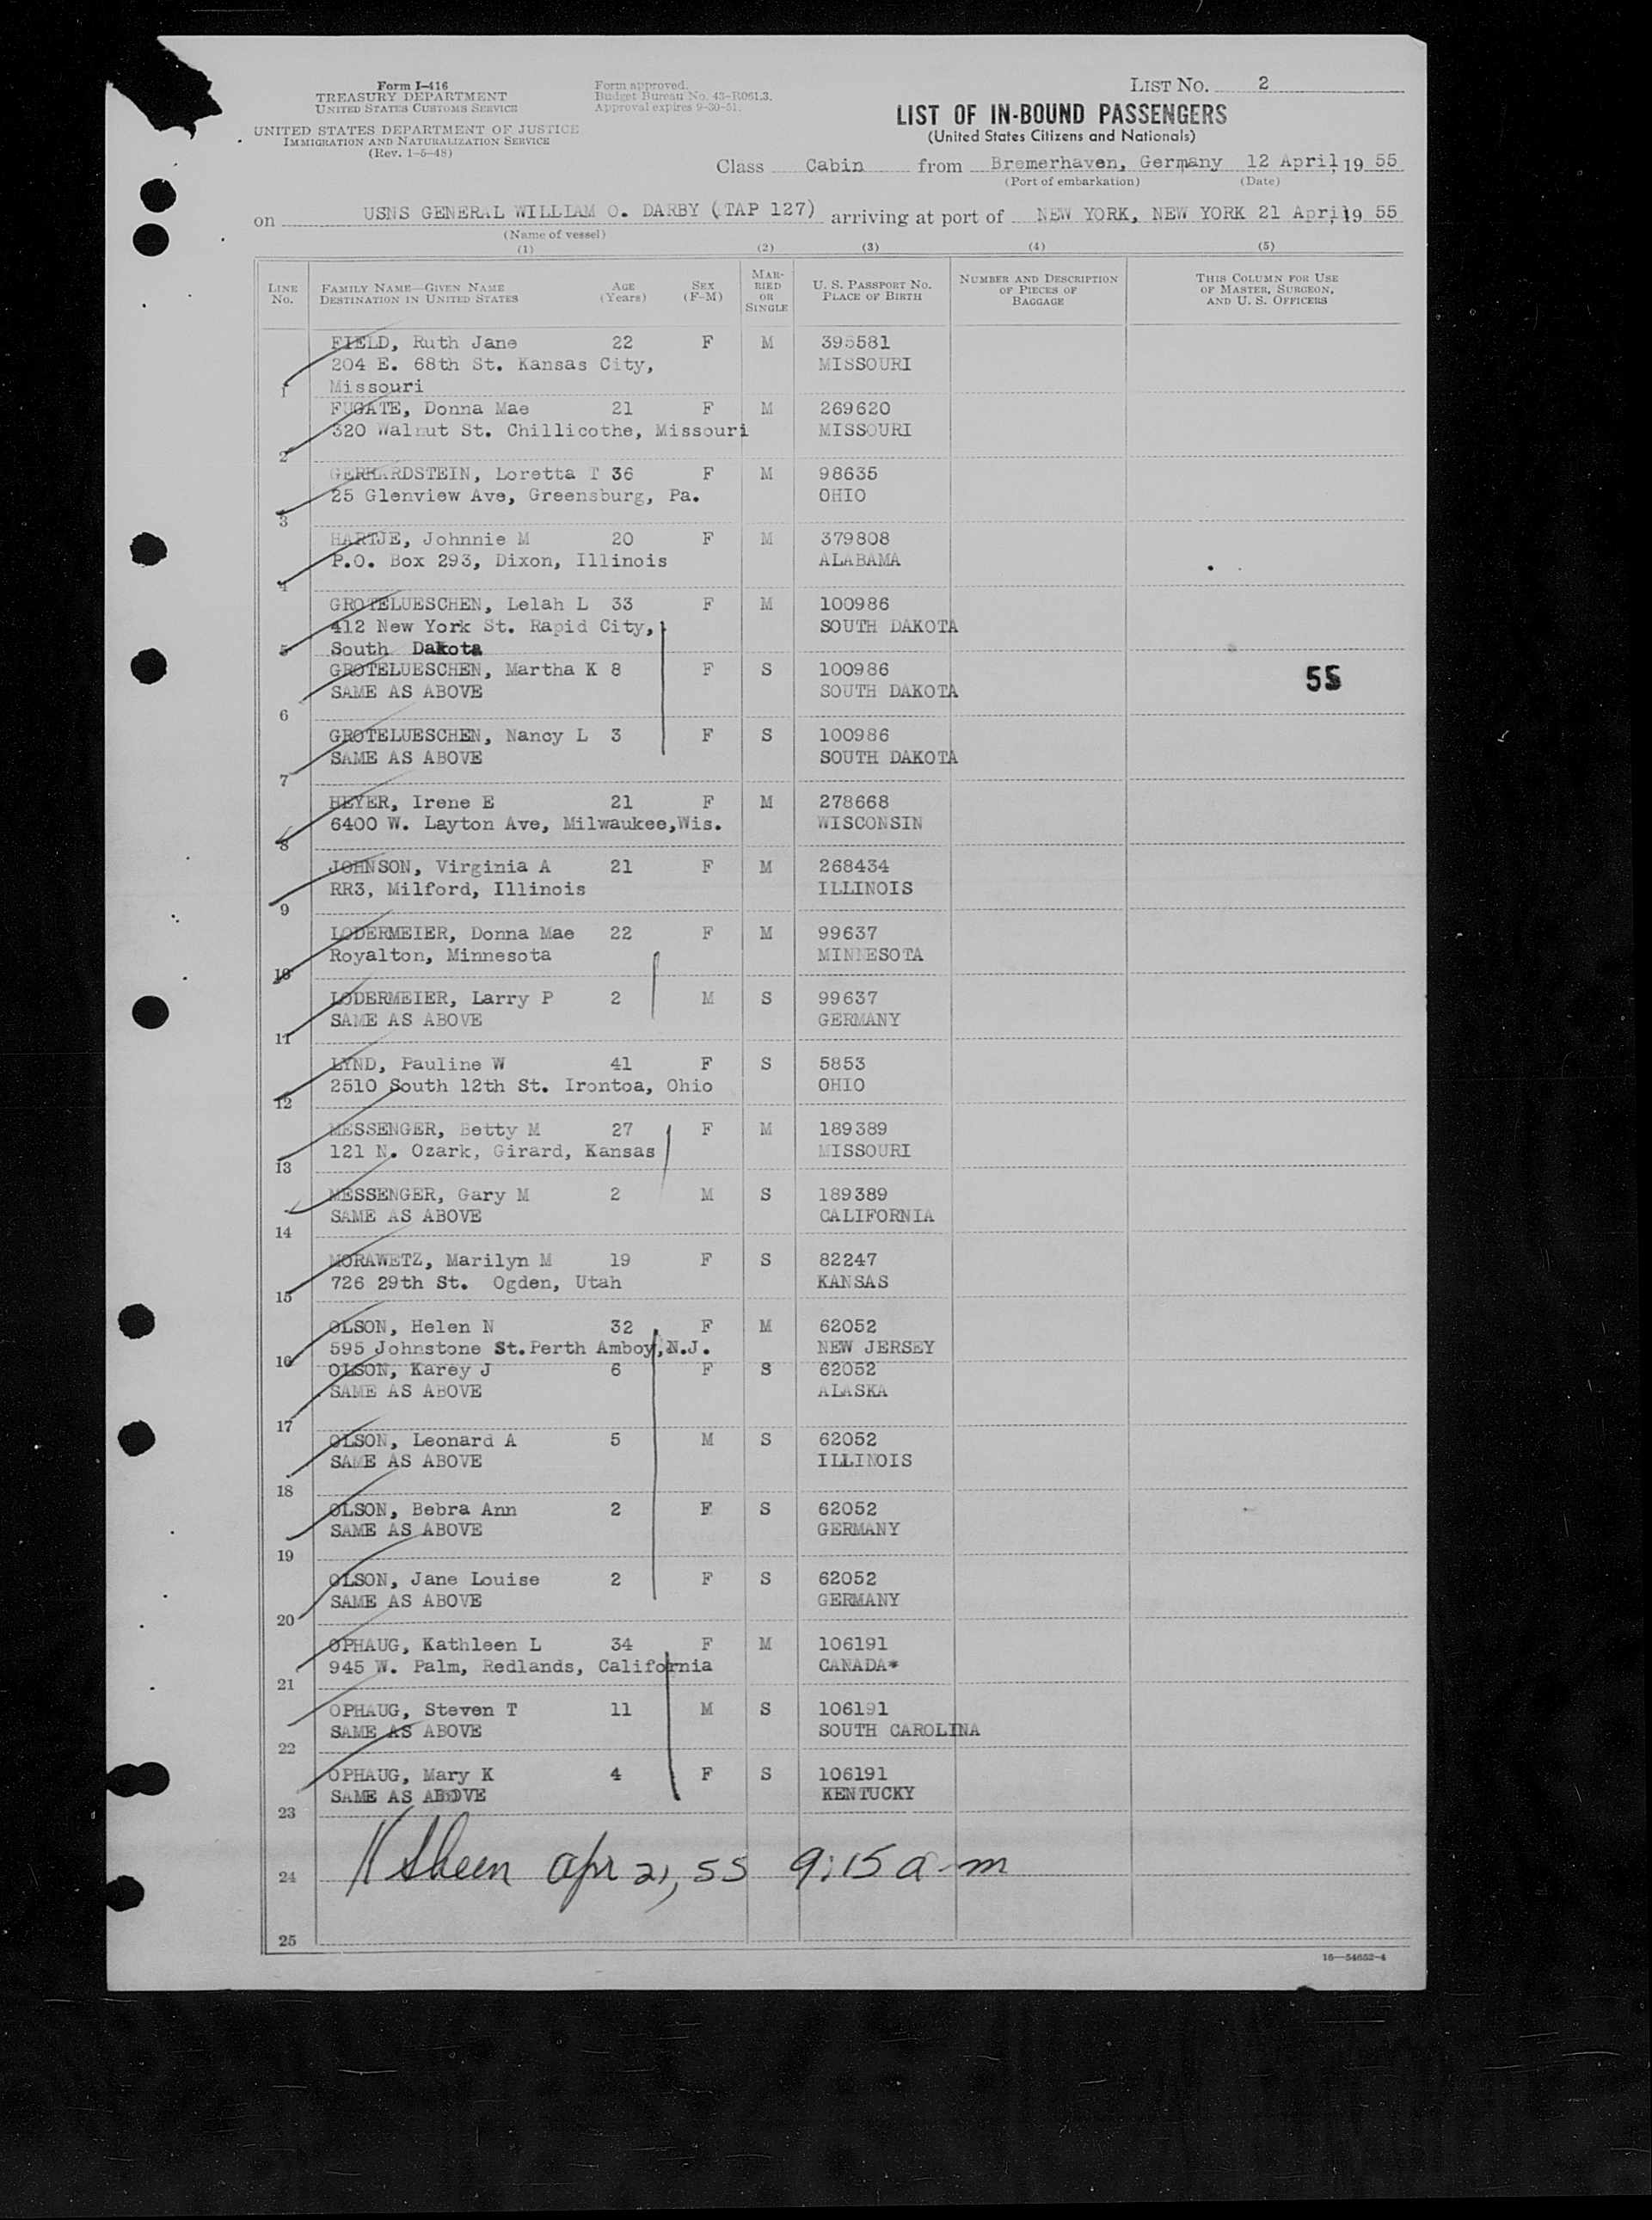 Form I-416
TREASURY DEPARTMENT
UNITED STATES CUSTOMS SERVICE
UNITED STATES DEPARTMENT OF JUSTICE
IMMIGRATION AND NATURALIZATION SERVICE
(Rev. 1-5-48)
Form approved.
Budget Bureau No. 43-R061.3.
Approval expires 9-30-51.
LIST NO. 2
LIST OF IN-BOUND PASSENGERS
(United States Citizens and Nationals)
Class Cabin from Bremerhaven, Germany 12 April, 19 55
(Port of embarkation) (Date)
on USNS GENERAL WILLIAM O. DARBY (TAP 127) arriving at port of NEW YORK, NEW YORK 21 April, 19 55
(Name of vessel)
(1) (2) (3) (4) (5)
LINE NO. FAMILY NAME—GIVEN NAME DESTINATION IN UNITED STATES AGE (Years) SEX (F-M) MARRIED OR SINGLE U. S. PASSPORT NO. PLACE OF BIRTH NUMBER AND DESCRIPTION OF PIECES OF BAGGAGE THIS COLUMN FOR USE OF MASTER, SURGEON, AND U. S. OFFICERS
FIELD, Ruth Jane 22 F M 395581
204 E. 68th St. Kansas City, MISSOURI
1 Missouri
FUGATE, Donna Mae 21 F M 269620
320 Walnut St. Chillicothe, Missouri MISSOURI
2
GERHARDSTEIN, Loretta T 36 F M 98635
25 Glenview Ave, Greensburg, Pa. OHIO
3
HARTJE, Johnnie M 20 F M 379808
P.O. Box 293, Dixon, Illinois ALABAMA
4
GROTELUESCHEN, Lelah L 33 F M 100986
412 New York St. Rapid City, SOUTH DAKOTA
5 South Dakota
GROTELUESCHEN, Martha K 8 F S 100986 55
SAME AS ABOVE SOUTH DAKOTA
6
GROTELUESCHEN, Nancy L 3 F S 100986
SAME AS ABOVE SOUTH DAKOTA
7
HEYER, Irene E 21 F M 278668
6400 W. Layton Ave, Milwaukee,Wis. WISCONSIN
8
JOHNSON, Virginia A 21 F M 268434
RR3, Milford, Illinois ILLINOIS
9
LODERMEIER, Donna Mae 22 F M 99637
Royalton, Minnesota MINNESOTA
10
LODERMEIER, Larry P 2 M S 99637
SAME AS ABOVE GERMANY
11
LYND, Pauline W 41 F S 5853
2510 South 12th St. Irontoa, Ohio OHIO
12
MESSENGER, Betty M 27 F M 189389
121 N. Ozark, Girard, Kansas MISSOURI
13
MESSENGER, Gary M 2 M S 189389
SAME AS ABOVE CALIFORNIA
14
MORAWETZ, Marilyn M 19 F S 82247
726 29th St. Ogden, Utah KANSAS
15
OLSON, Helen N 32 F M 62052
595 Johnstone St. Perth Amboy, N.J. NEW JERSEY
16
OLSON, Karey J 6 F S 62052
SAME AS ABOVE ALASKA
17
OLSON, Leonard A 5 M S 62052
SAME AS ABOVE ILLINOIS
18
OLSON, Bebra Ann 2 F S 62052
SAME AS ABOVE GERMANY
19
OLSON, Jane Louise 2 F S 62052
SAME AS ABOVE GERMANY
20
OPHAUG, Kathleen L 34 F M 106191
945 W. Palm, Redlands, California CANADA*
21
OPHAUG, Steven T 11 M S 106191
SAME AS ABOVE SOUTH CAROLINA
22
OPHAUG, Mary K 4 F S 106191
SAME AS ABOVE KENTUCKY
23
24 Apr 21, 55 9:15 a m
25
16—54652-4